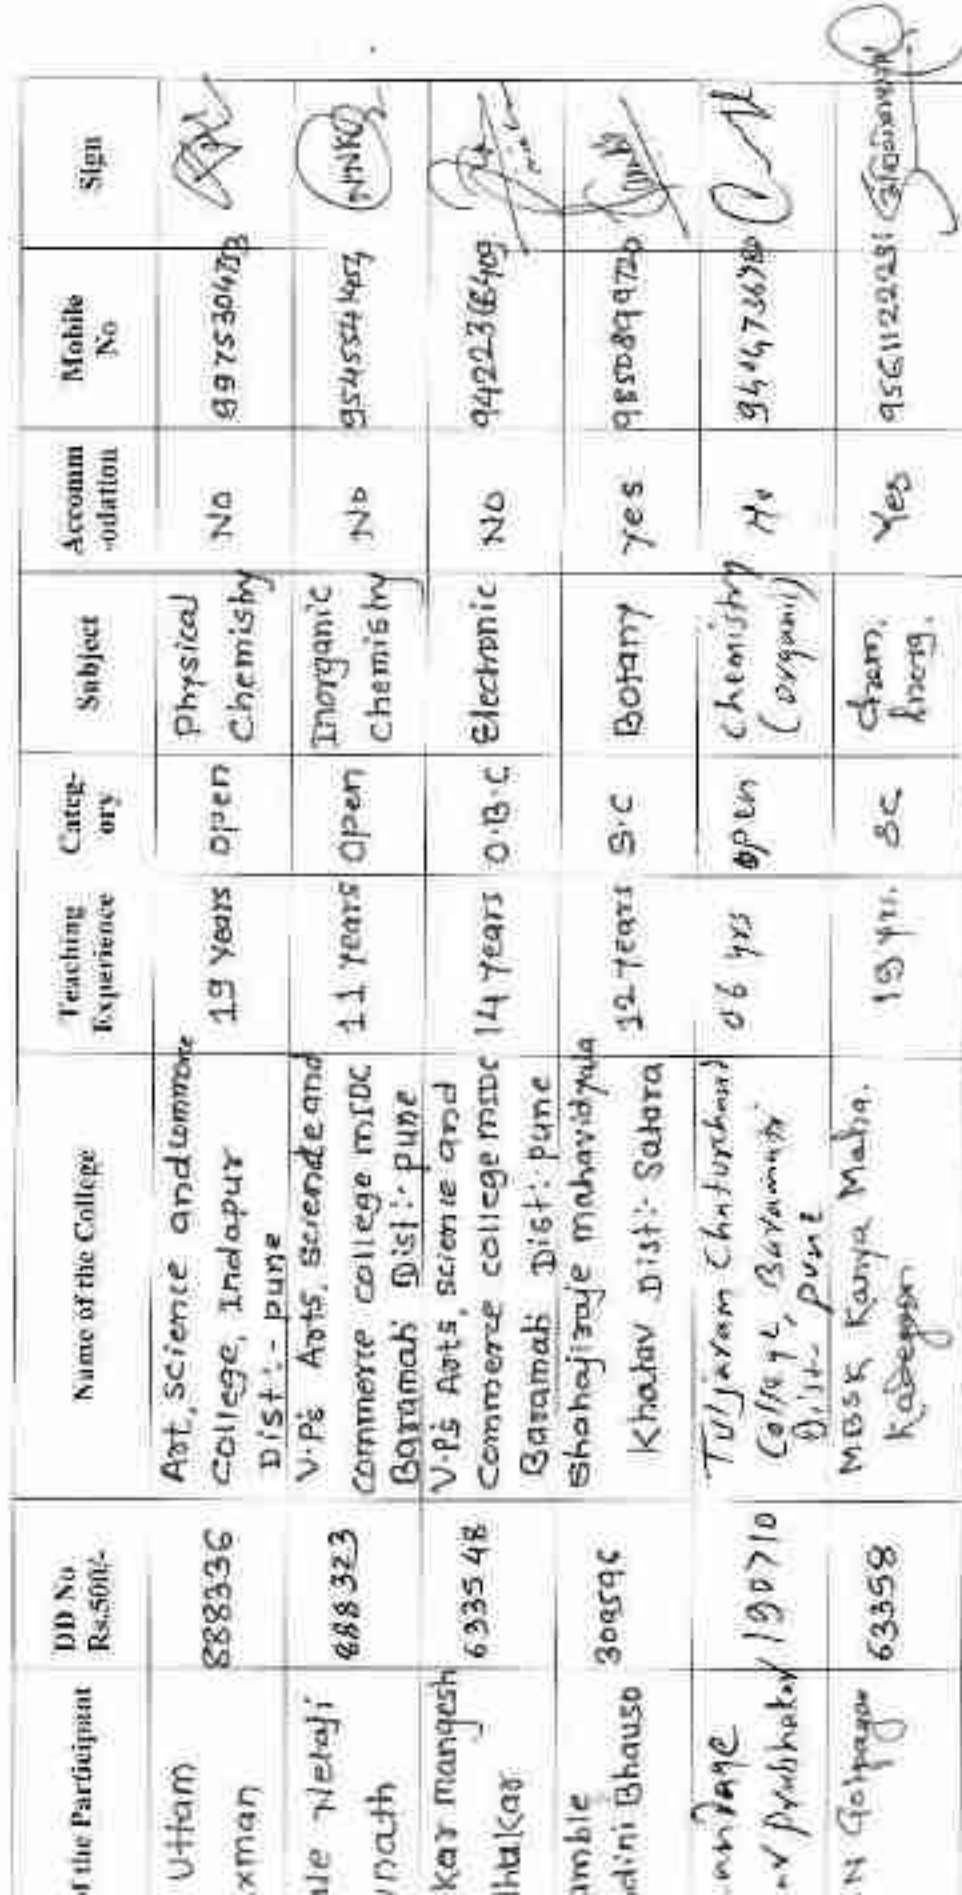 of the Participant
DD No
Rs.500/-
Name of the College
Teaching
Experience
Categ-
ory
Subject
Accomm
-odation
Mobile
No
Sign
Uttam
xman
888336
Art, science and commerce
College, Indapur
Dist :- pune
19 years
open
Physical
Chemistry
No
ale Netaji
nath
888323
V.P's Arts, Science and
Commerce college MIDC
Baramati Dist :- pune
11 years
open
Inorganic
chemistry
No
Kar mangesh
633548
V.P's Arts, science and
Commerce college MIDC
Baramati Dist :- pune
14 years
O.B.C
Electronic
No
9422366409
amble
dini Bhauso
309596
Shahajiraje mahavidyala
Khatav Dist :- Satara
12 years
S.C
Botany
yes
9850899720
190710
Tuljaram Chaturchand
College, Baramati
Dist - pune
06 yrs
open
chemistry
(organic)
No
63358
MBSK Kanya Maha.
Kadegaon
19 yrs.
SC
Chem.
Inorg.
Yes
9561122231